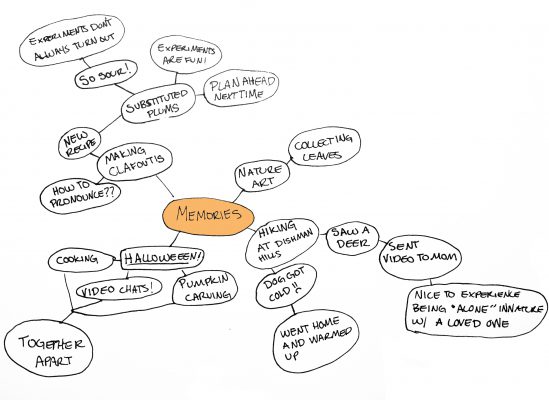 EXPERIMENTS DON'T
ALWAYS TURN OUT
EXPERIMENTS
ARE FUN!
SO SOUR!
SUBSTITUTED
PLUMS
PLAN AHEAD
NEXT TIME
NEW
RECIPE
MAKING
CLAFOUTIS
HOW TO
PRONOUNCE??
COLLECTING
LEAVES
NATURE
ART
MEMORIES
HIKING
AT DISHMAN
HILLS
SAW A
DEER
SENT
VIDEO TO MOM
NICE TO EXPERIENCE
BEING "ALONE" IN NATURE
W/ A LOVED ONE
DOG GOT
COLD !!
WENT HOME
AND WARMED
UP
COOKING
HALLOWEEEN!
VIDEO CHATS!
PUMPKIN
CARVING
TOGETHER
APART